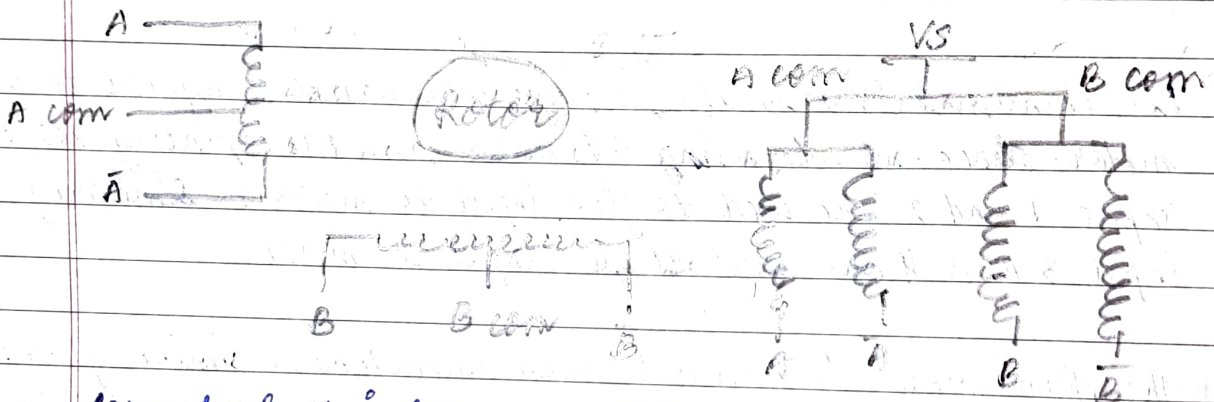 A
A com
Ā
Rotor
B
B com
B̄
VS
A com
B com
A
Ā
B
B̄